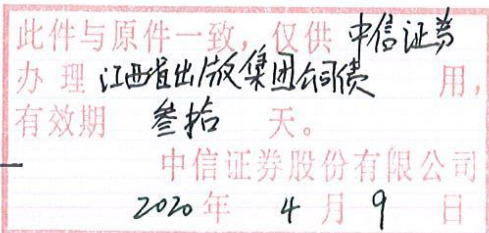 此件与原件一致，仅供 中信证券
办理 江西省出版集团公司债 用，
有效期 叁拾 天。
中信证券股份有限公司
2020年 4月9日